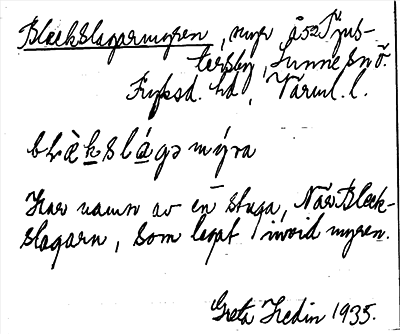 Bleckslagarmyren, myr å 52 Tjus-
tersby, Sunne sn ö.
Fryksd. hd, Värml. l.
blàkslágə mýra
Har namn av en stuga, När Bleck-
slagarn, som legat invid myren.
Greta Hedin 1935.